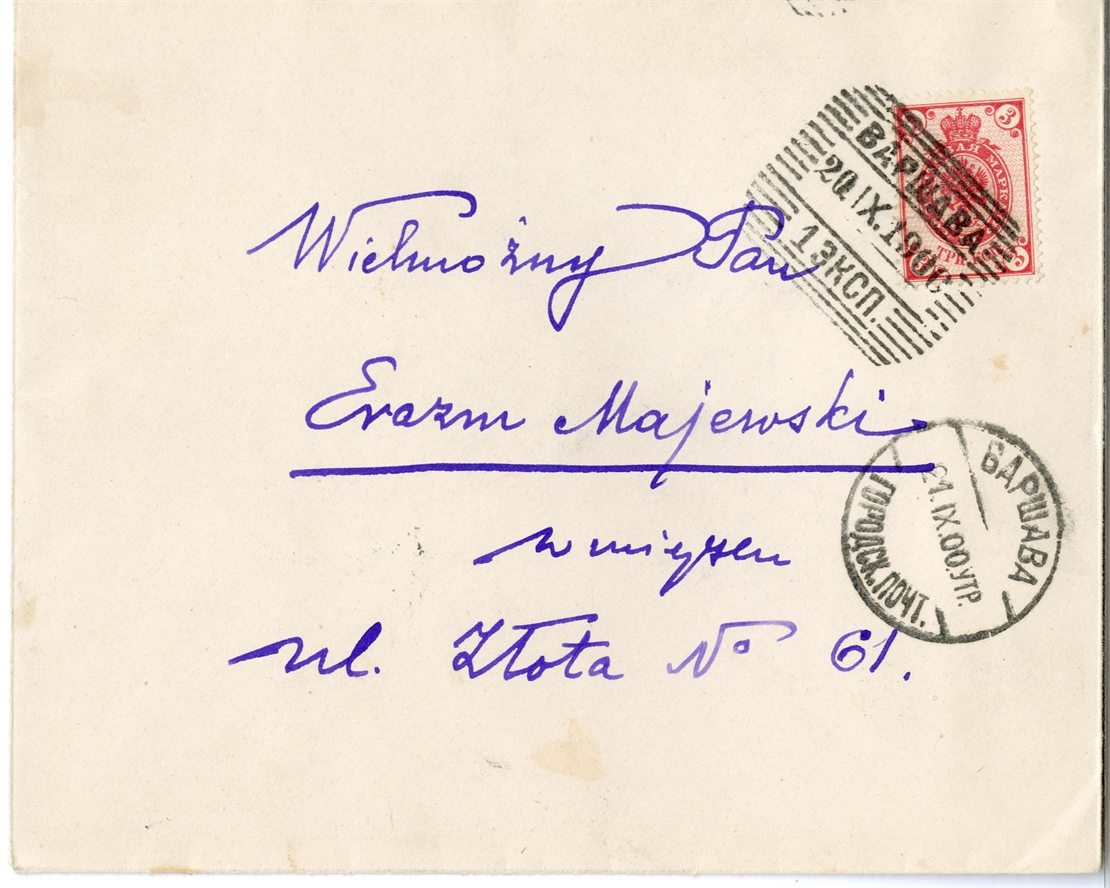 3
ВАЯ МАРК
ТРИ
3
ВАРШАВА
20 IX.1900
1 ЭКСП.
Wielmożny Pan
Erazm Majewski
w miejscu
ul. Złota No 61.
ВАРШАВА
21.IX.00.УТР.
ГОРОДСК.ПОЧТ.